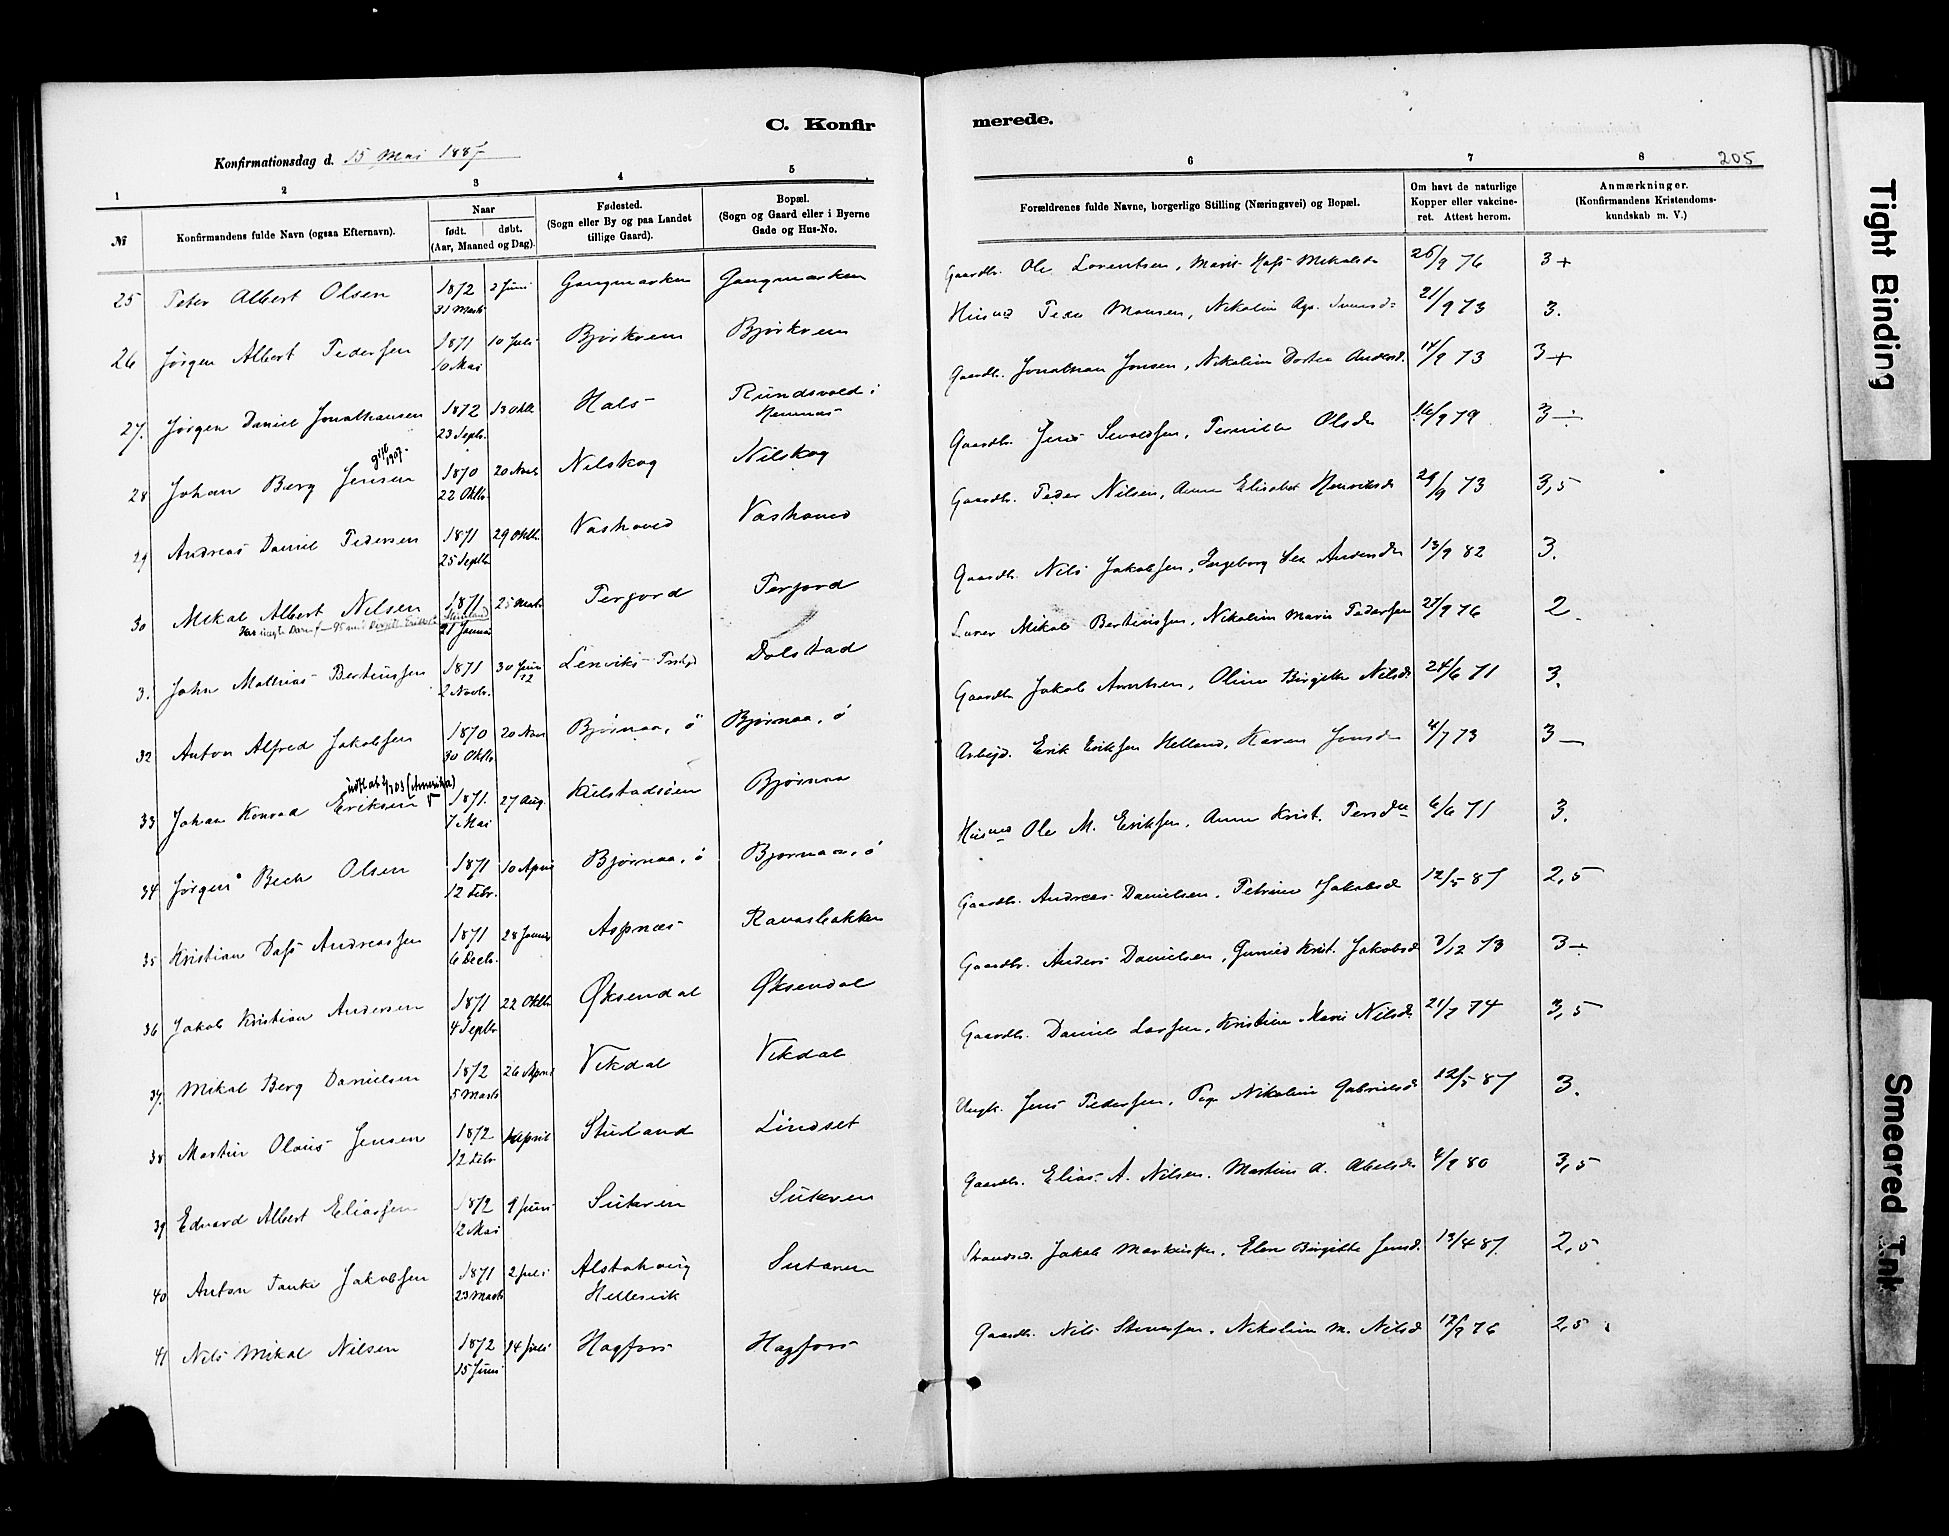 C. Konfirmerede.
Konfirmationsdag d. 15 Mai 1887
205
1 2 3 4 5 6 7 8
№
Konfirmandens fulde Navn (ogsaa Efternavn).
Naar
født. døbt.
(Aar, Maaned og Dag).
Fødested.
(Sogn eller By og paa Landet
tillige Gaard).
Bopæl.
(Sogn og Gaard eller i Byerne
Gade og Hus-No.
Forældrenes fulde Navne, borgerlige Stilling (Næringsvei) og Bopæl.
Om havt de naturlige
Kopper eller vakcine-
ret. Attest herom.
Anmærkninger.
(Konfirmandens Kristendoms-
kundskab m. V.)
25 Peter Albert Olsen 1872 31 Marts 2 Juni Gangmarken Gangmarken Gaardbr. Ole Lorentsen, Marit Mikalsdr 26/9 76 3+
26 Jørgen Albert Pedersen 1871 10 Mai 10 Juli Bjørkvem Bjørkvem Husmd Peder Monsen, Nikolin 21/9 73 3.
27. Jørgen Daniel Jonathansen 1872 23 Septr. 13 Oktb Hals Rundsvold i Hemnæs Gaardbr. Jonathan Jonsen, Nikolina Dortea Andersd. 14/9 73 3+
28 Johan Berg Jensen gift 1907. 1870 22 Oktbr. 20 Novb Nilskog Nilskog Gaardbr. Jens Sivaldsen, Pernille Olsdr 16/9 79 3÷
29 Andreas Daniel Pedersen 1871 25 Septb 29 Oktb. Vashoved Vashoved Gaardbr. Peder Nilsen, Anne Elisabet Henriksdr 29/9 73 3,5
30 Mikal Albert Nilsen 1871 21 Januar 25 Marts Terjord Terjord Gaardbr. Nils Jakobsen, Ingeborg 13/9 82 3.
31. John Mathias Bertinssen 1871 2 Novbr. 30 Juni 72 Lenviks Dolstad Lærer Mikal Bertinssen, Nikolina Marie Pedersen 27/9 76 2.
32 Anton Alfred Jakobsen 1870 30 Oktb 20 Nov Bjørnaa, ö Bjørnaa, ö Gaardbr Jakob Arntsen, Oline Birgitte Nilsdr 24/6 71 3.
33 Johan Konrad Eriksen (Amerika) 1871. 7 Mai 27 Aug. Kulstadsøen Bjørnaa Arbejd. Erik Eriksen Helland, Karen Jonsdr 4/7 73 3—
34 Jørgen Bech Olsen 1871 12 Febr. 10 April Bjørnaa, ö Bjørnaa, ö Husmd Ole M. Eriksen, Anne Krist. Persdtr 6/6 71 3.
35 Kristian Dass Andreassen 1871 6 Decb. 28 Januar Aspnæs Ravasbakken Gaardbr. Andreas Danielsen, Petrine Jakobsd 12/5 87 2,5
36 Jakob Kristian Andersen 1871 4 Septbr 22 Oktb Øksendal Øksendal Gaardbr. Anders Danielsen, Gunild Krist. Jakobsd 3/12 73 3+
37. Mikal Berg Danielsen 1872 5 Marts 26 April Vikdal Vikdal Gaardbr. Daniel Larsen, Kristine Marie Nilsd. 21/7 74 3,5
38 Martin Olaus Jensen 1872 12 Febr April Stuland Lindset Ungk. Jens Pedersen, Nikoline Gabrielsd 12/5 87 3.
39 Edvard Albert Eliassen 1872 2 Mai 9 Juni Sutøren Sutøren Gaardbr. Elias A. Nilsen, Martine A. Abelsdr 4/9 80 3,5
40 Anton Tanke Jakobsen 1871 23 Marts 2 Juli Alstahoug Hellesvik Sutøren Strandsd. Jakob Markussen, Elen Birgitte Jensd. 13/4 87. 2,5
41 Nils Mikal Nilsen 1872 15 Juni 14 Juli Hagfors Hagfors Gaardbr. Nils Steensen, Nikoline M. Nilsd 12/9 76 2,5
Tight Binding
Smeared Ink